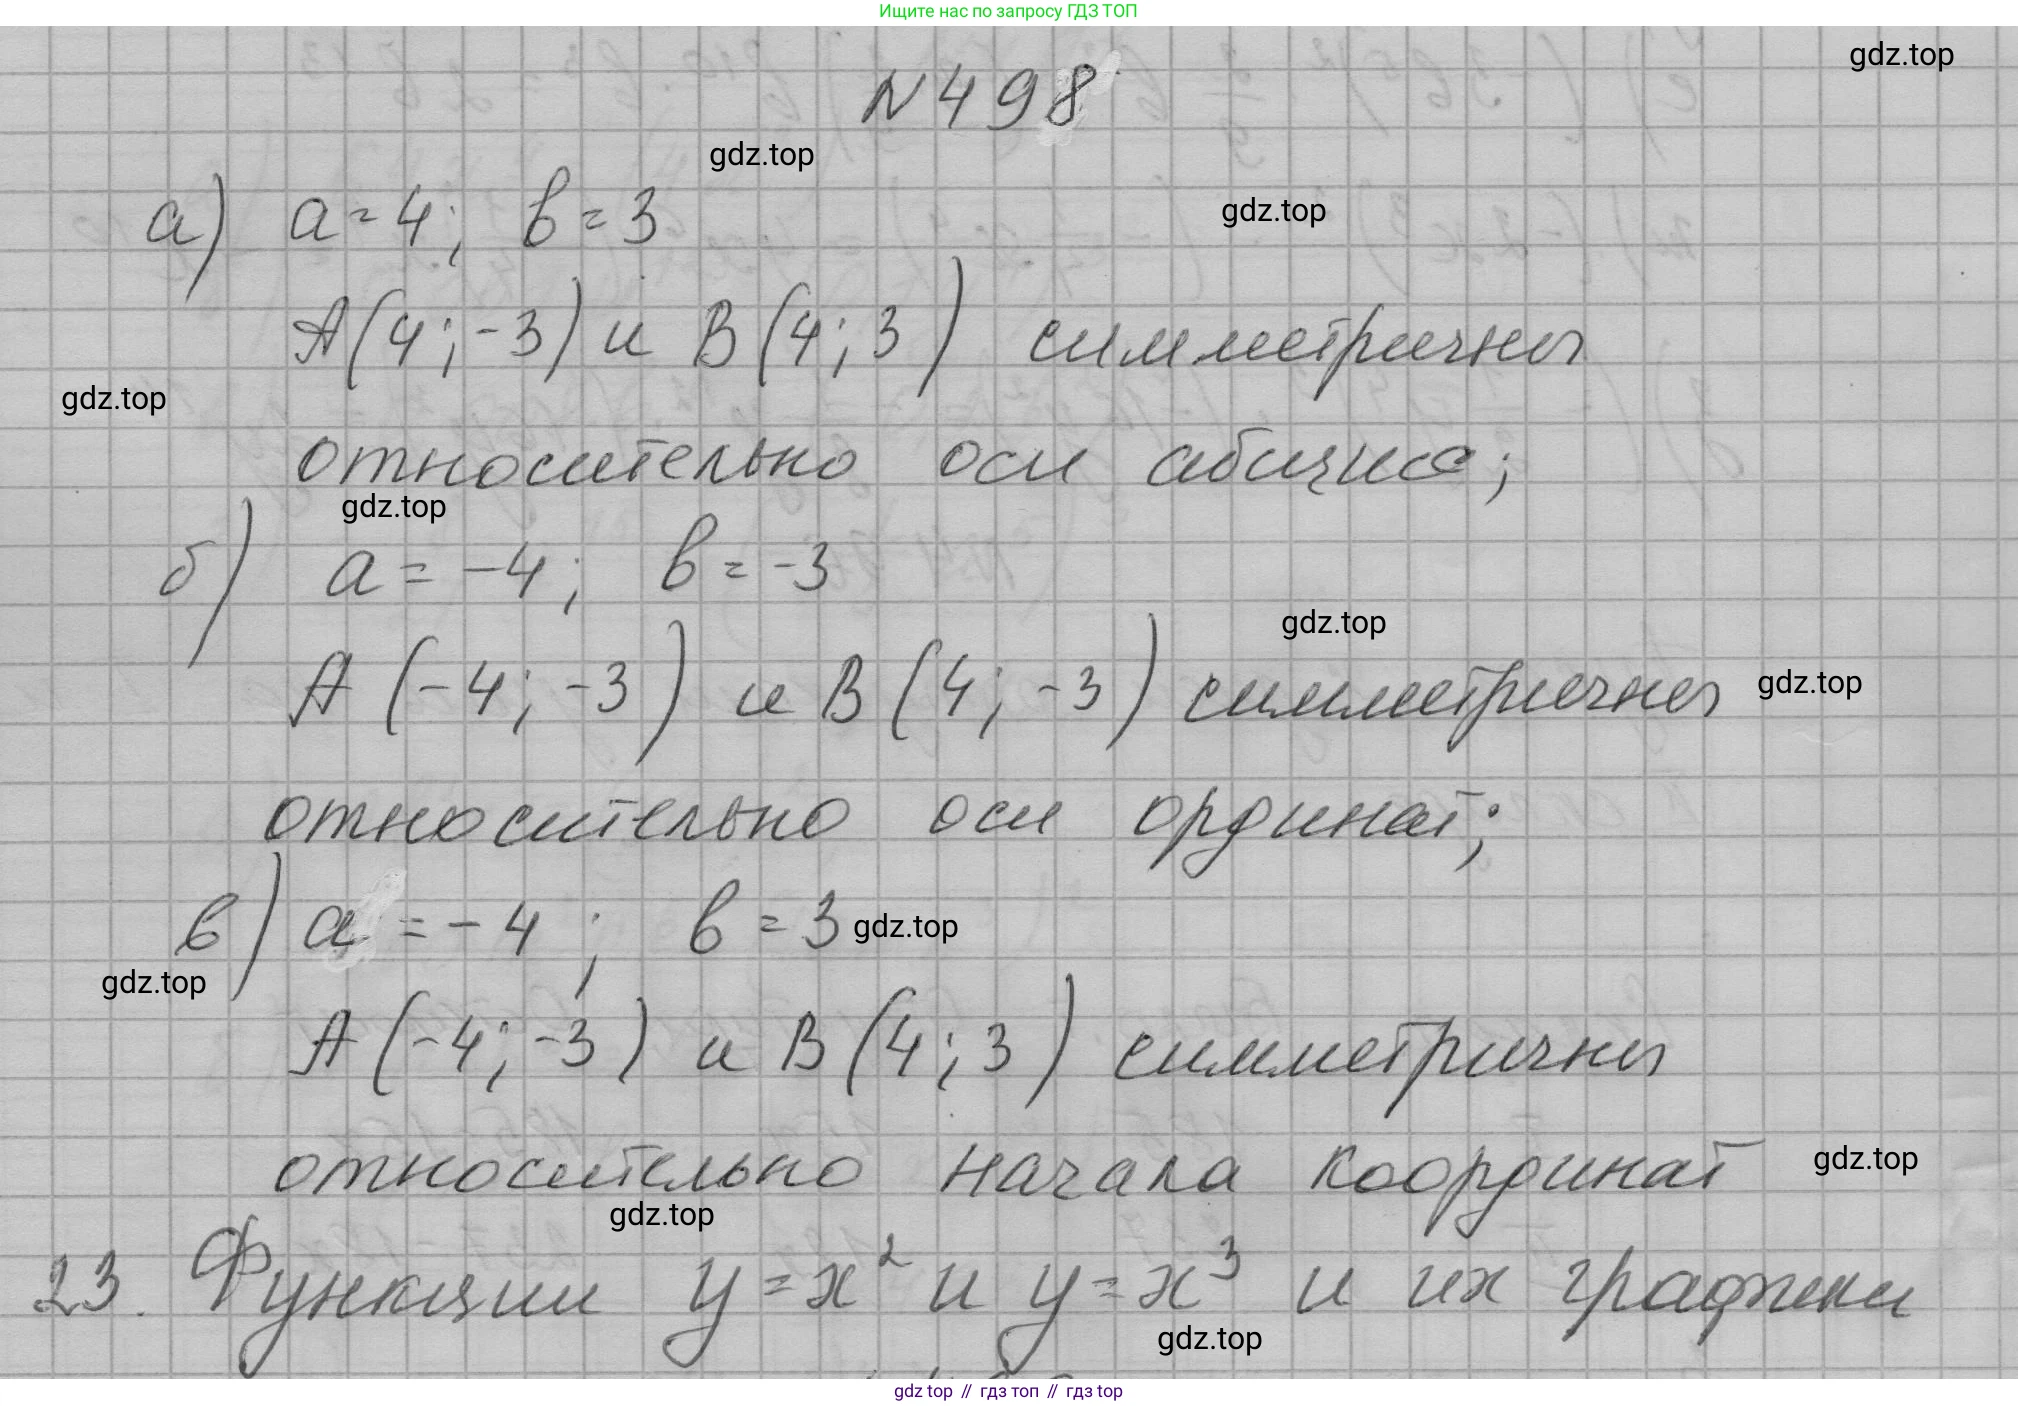 Ищите нас по запросу ГДЗ ТОП
gdz.top
N498
gdz.top
а) a=4; в=3
gdz.top
A(4;-3) и B(4;3) симметричны
gdz.top
относительно оси абсцисс;
gdz.top
б) a=-4; в=-3
gdz.top
A(-4;-3) и B(4;-3) симметричны
gdz.top
относительно оси ординат;
в) a=-4; в=3
gdz.top
gdz.top
A(-4;-3) и B(4;3) симметричны
относительно начала координат
gdz.top
gdz.top
23. Функции y=x² и y=x³ и их графики
gdz.top
gdz top // гдз топ // гдз top